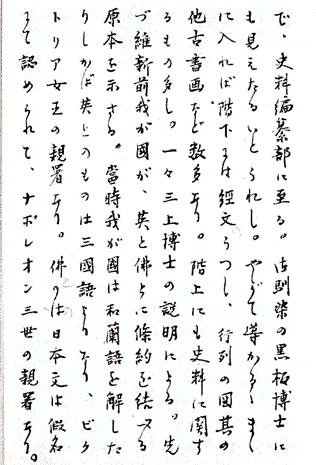 で、史料編纂部に至る。御馴染の黒板博士に
も見えたるいとうれし。やがて導かるゝまゝ
に入れば階下には經文うつし、行列の図其の
他古書画など数多あり。階上にも史料に関す
るもの多し。一々三上博士の説明による。先
づ維新前我が國が、英と佛とに條約を結べる
原本を示さる。當時我が國は和蘭語を解した
りしかば英よりのものは三國語よりなり、ビク
トリア女王の親署あり。佛のは日本文は假名
にて認められて、ナポレオン三世の親署あり。